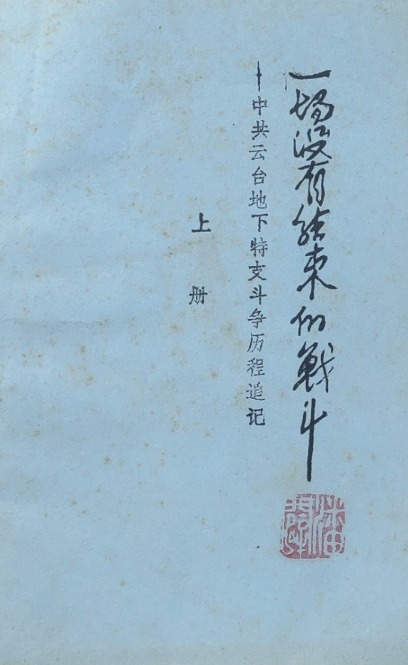 一场没有结束的战斗
—中共云台地下特支斗争历程追记
上册